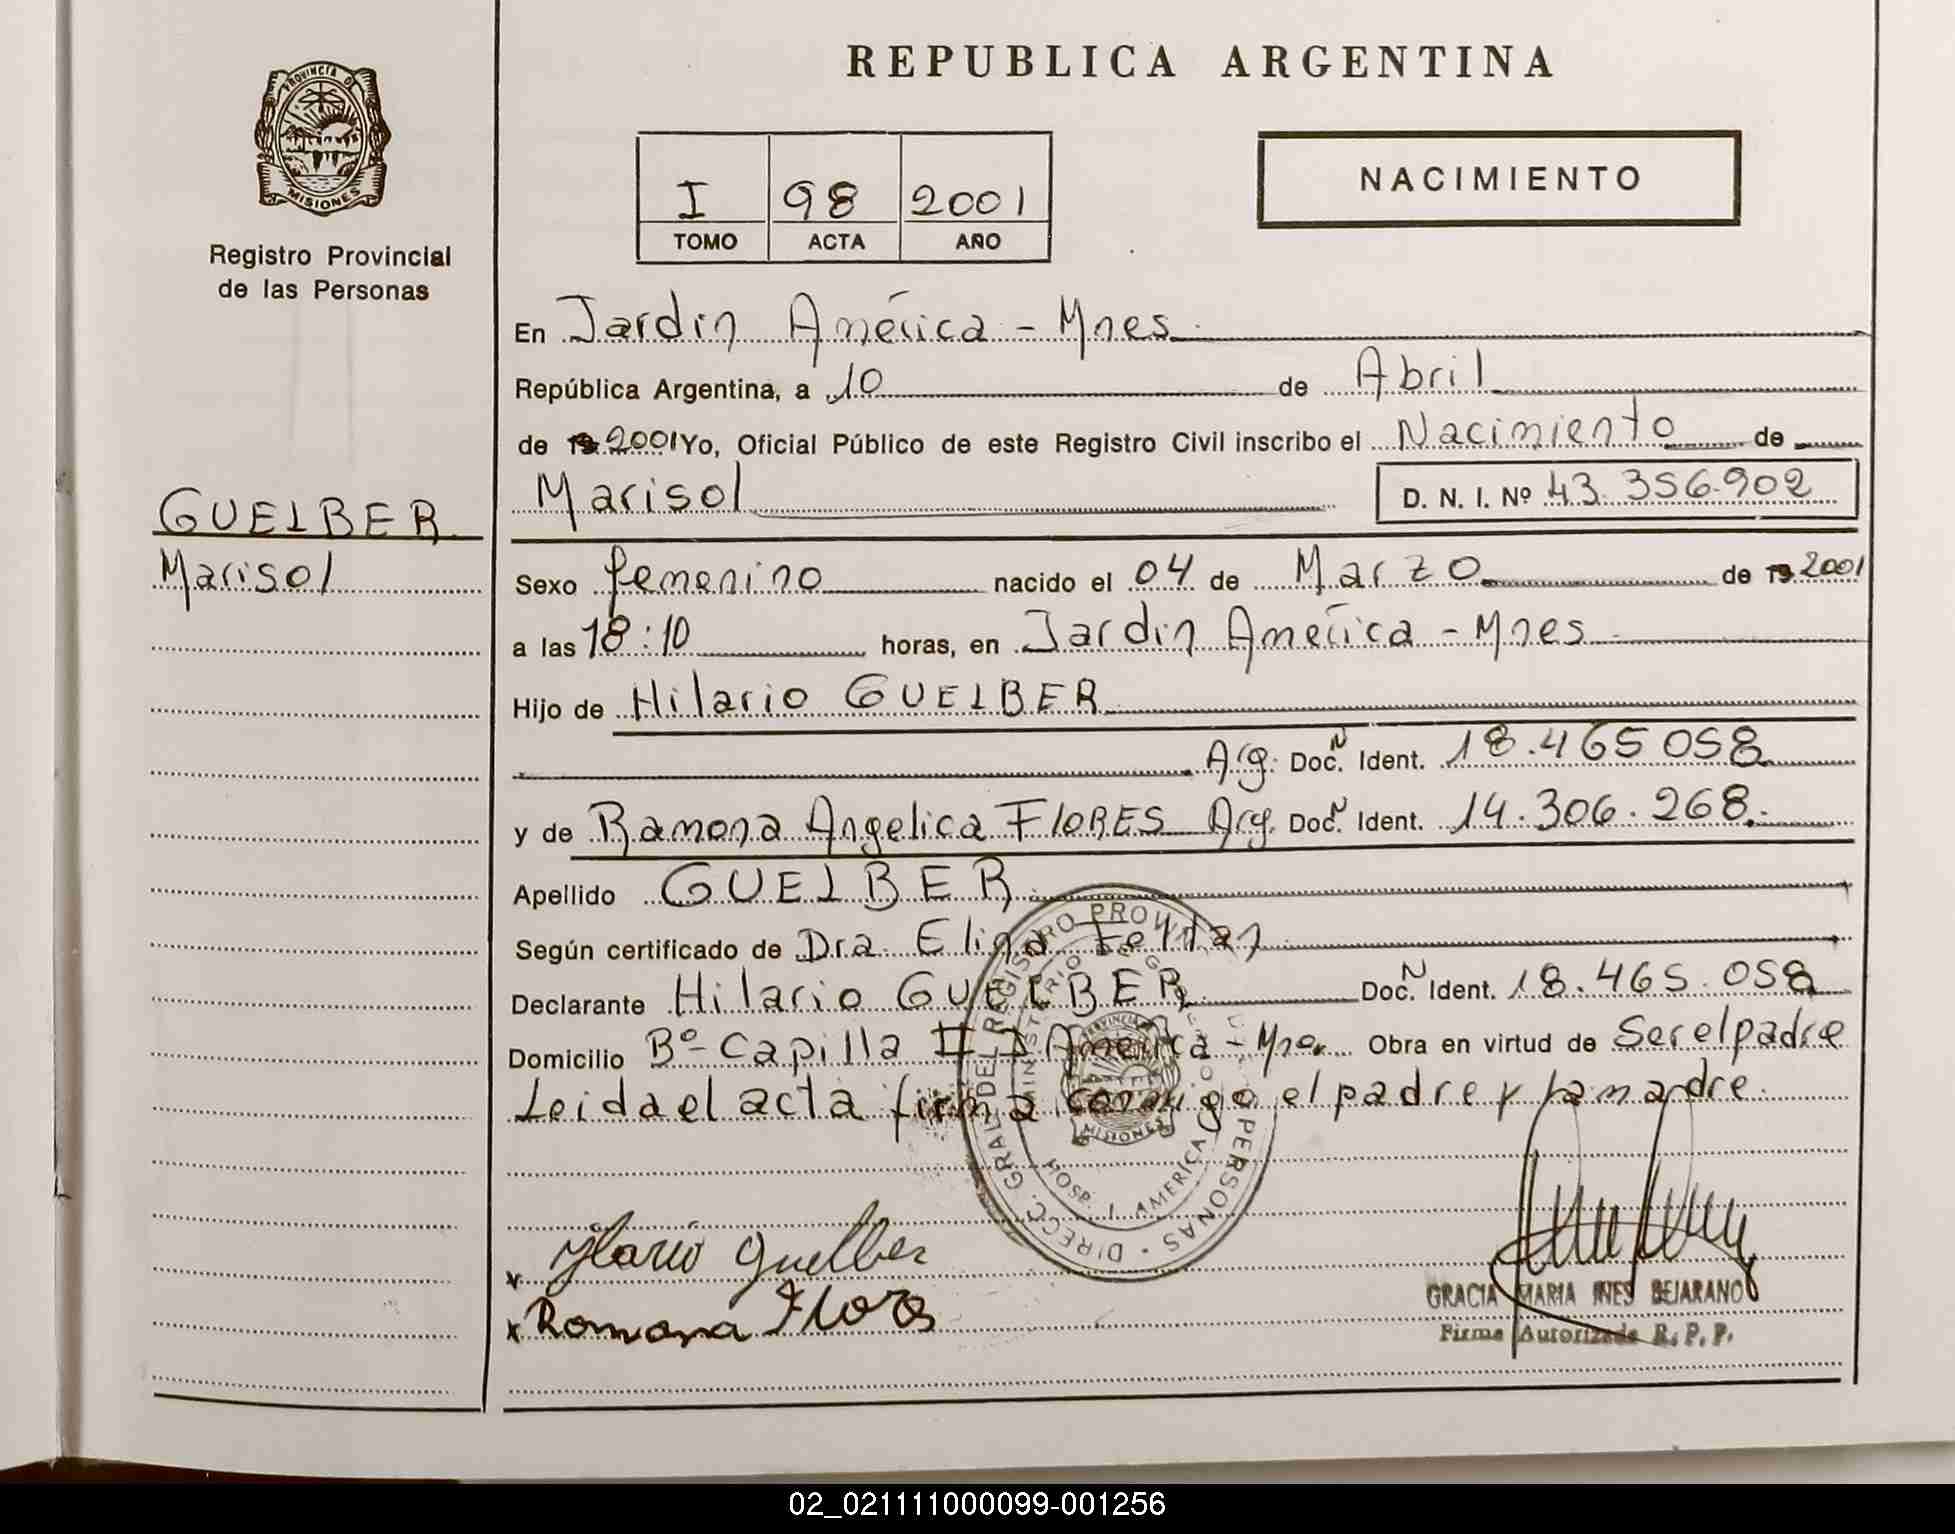 REPUBLICA ARGENTINA
PROVINCIA DE
MISIONES
Registro Provincial
de las Personas
I 98 2001
TOMO ACTA AÑO
NACIMIENTO
En Jardin América - Mnes.
República Argentina, a 10 de Abril
de 19 2001 Yo, Oficial Público de este Registro Civil inscribo el Nacimiento de
Marisol D. N. I. Nº 43.356.902
GUELBER
Marisol
Sexo femenino nacido el 04 de Marzo de 19 2001
a las 18:10 horas, en Jardin América - Mnes
Hijo de Hilario GUELBER
Arg. Doc. N Ident. 18.465 058
y de Ramona Angelica FLORES Arg. Doc. N Ident. 14.306.268.
Apellido GUELBER
Según certificado de Dra. Elina
Declarante Hilario GUELBER Doc. N Ident. 18.465.058
Domicilio Bº Capilla II J América - Mnes. Obra en virtud de Ser el padre
Leida el acta firma conmigo el padre y la madre.
DIRECC. GRAL. DEL REGISTRO PROVINCIAL PERSONAS
HOSP. J. AMERICA
PROVINCIA
MISIONES
x Ylario Guelber
x Romona Flores
GRACIA MARIA INES BEJARANO
Firma Autorizada R. P. P.
02_021111000099-001256